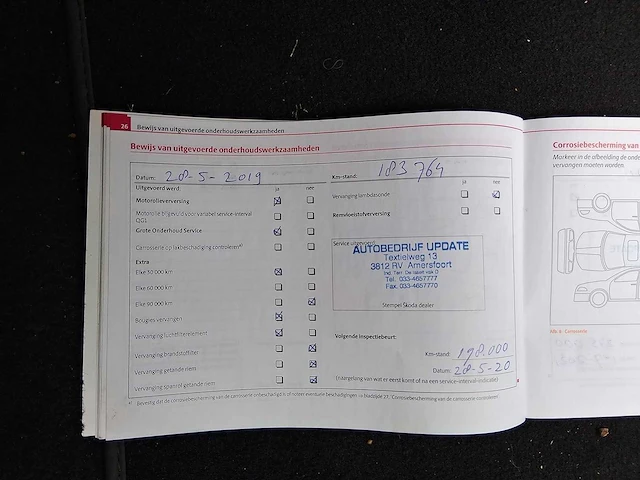 26 Bewijs van uitgevoerde onderhoudswerkzaamheden
Bewijs van uitgevoerde onderhoudswerkzaamheden
Datum: 28-5-2019
Uitgevoerd werd: ja nee
Motorolieverversing
Motorolie bijgevuld voor variabel service-interval
QGL
Grote Onderhoud Service
Carrosserie op lakbeschadiging controleren
Extra
Elke 30 000 km
Elke 60 000 km
Elke 90 000 km
Bougies vervangen
Vervanging luchtfilterelement
Vervanging brandstoffilter
Vervanging getande riem
Vervanging spanrol getande riem
Km-stand: 183 764
ja nee
Vervanging lambdasonde
Remvloeistofverversing
Service uitgevoerd
AUTOBEDRIJF UPDATE
Textielweg 13
3812 RV Amersfoort
Tel. 033-4657777
Fax. 033-4657770
Stempel Škoda dealer
Volgende inspectiebeurt:
Km-stand: 198.000
Datum: 28-5-20
(Afhankelijk van wat er eerst komt of na een service-interval-indicatie)
Bevestig dat de corrosiebescherming van de carrosserie onbeschadigd is of noteer eventuele beschadigingen
Corrosiebescherming van
Markeer in de afbeelding de onde
vervangen moeten worden.